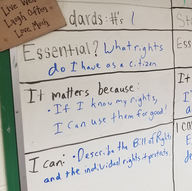 Live Well
Laugh Often
Love Much
dards: #'s 1
Essential? What rights
do I have as a citizen
It matters because:
• If I know my rights,
I can use them for good!
I can: • Describe the Bill of Rights
and the individual rights it protects
St
Es
It t
I c